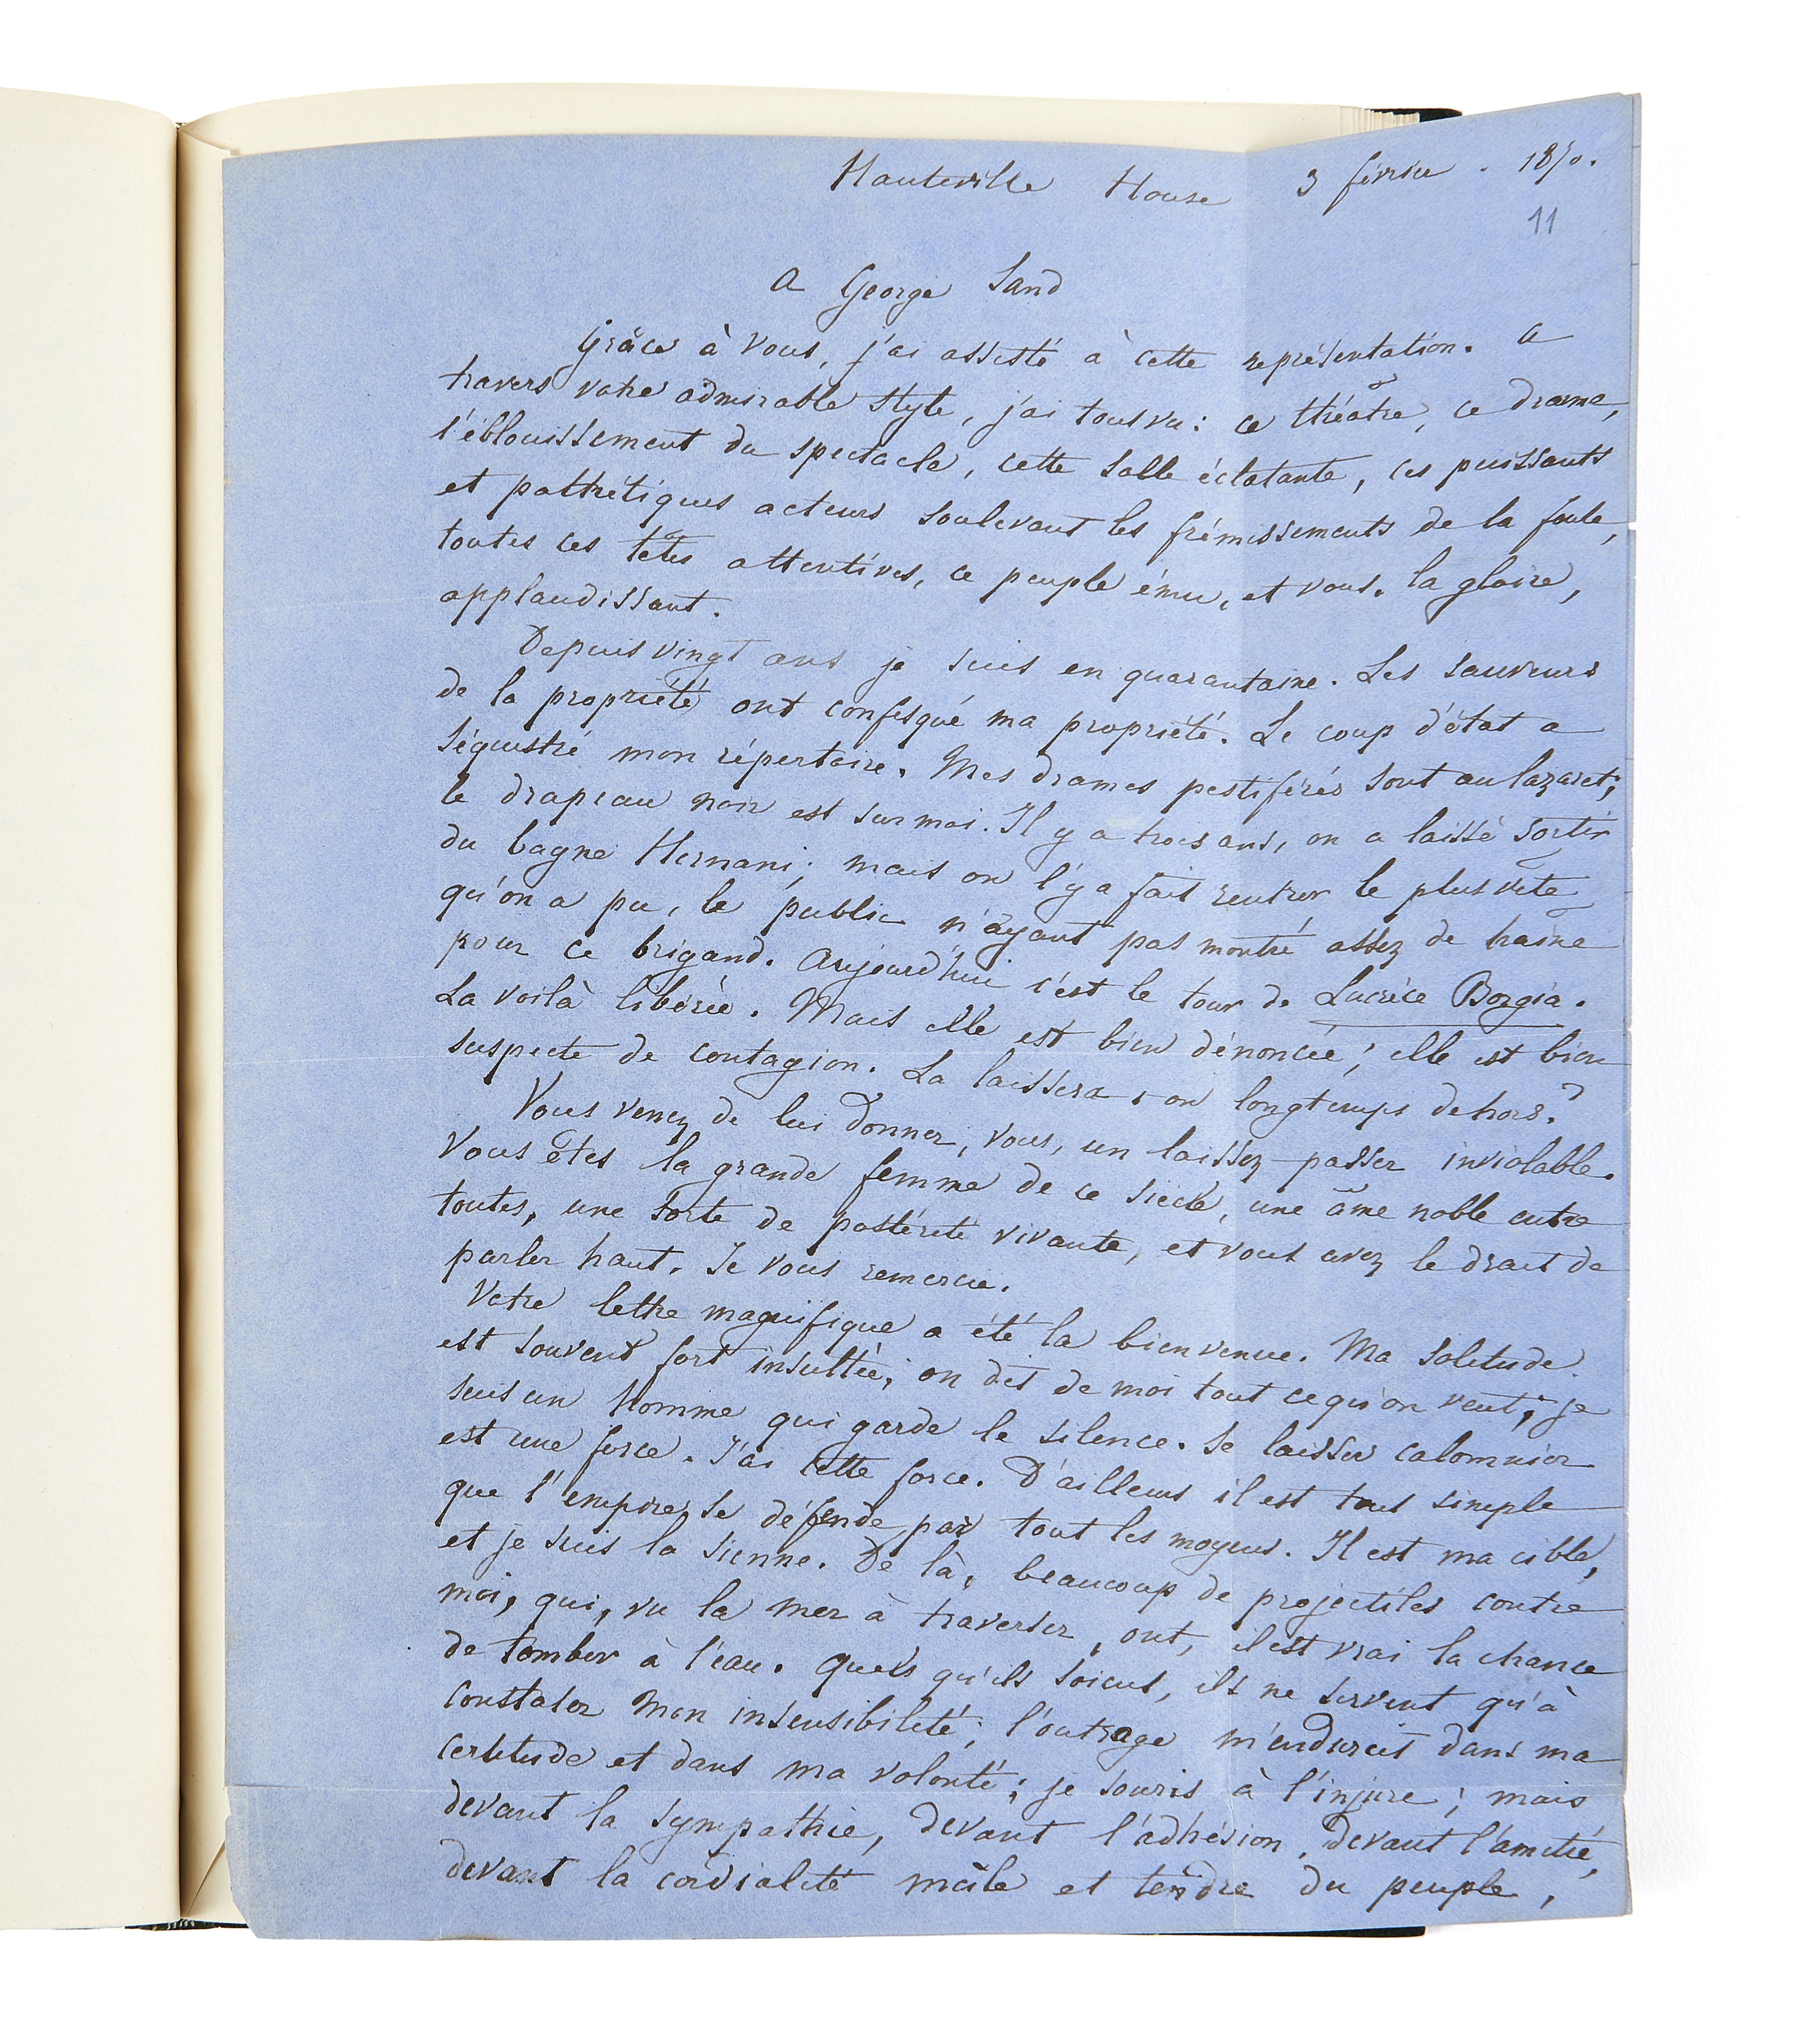 Hauteville House 3 février . 1870.
11
A George Sand
Grâce à vous, j'ai assisté à cette représentation. A
travers votre admirable style, j'ai tout vu : ce théâtre, ce drame,
l'éblouissement du spectacle, cette salle éclatante, ces puissants
et pathétiques acteurs soulevant les frémissements de la foule,
toutes ces têtes attentives, ce peuple ému, et vous, la gloire,
applaudissant.
Depuis vingt ans je suis en quarantaine. Les sauveurs
de la propriété ont confisqué ma propriété. Le coup d'état a
séquestré mon répertoire. Mes drames pestiférés sont au lazaret;
le drapeau noir est sur moi. Il y a trois ans, on a laissé sortir
du bagne Hernani; mais on l'y a fait rentrer le plus vite
qu'on a pu, le public n'ayant pas montré assez de haine
pour ce brigand. Aujourd'hui c'est le tour de Lucrèce Borgia.
La voilà libérée. Mais elle est bien dénoncée; elle est bien
suspecte de contagion. La laissera-t-on longtemps dehors?
Vous venez de lui donner, vous, un laissez-passer inviolable.
Vous êtes la grande femme de ce siècle, une âme noble entre
toutes, une sorte de postérité vivante, et vous avez le droit de
parler haut. Je vous remercie.
Votre lettre magnifique a été la bienvenue. Ma solitude
est souvent fort insultée; on dit de moi tout ce qu'on veut; je
suis un homme qui garde le silence. Se laisser calomnier
est une force. J'ai cette force. D'ailleurs il est tout simple
que l'empire se défende par tout les moyens. Il est ma cible,
et je suis la sienne. De là, beaucoup de projectiles contre
moi, qui, vu la mer à traverser, ont, il est vrai la chance
de tomber à l'eau. Quels qu'ils soient, ils ne servent qu'à
constater mon insensibilité; l'outrage m'endurcit dans ma
certitude et dans ma volonté; je souris à l'injure; mais
devant la sympathie, devant l'adhésion, devant l'amitié,
devant la cordialité mâle et tendre du peuple,